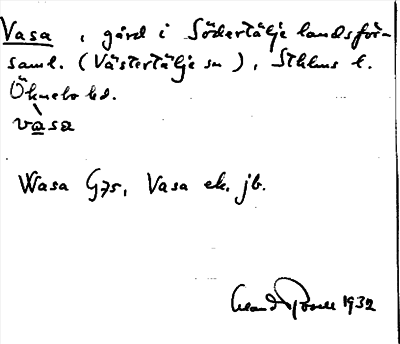 Vasa, gård i Södertälje landsför-
saml. (Västertälje sn), Sthlms l.
Öknebo hd.
vàsa
Wasa G75, Vasa ek. jb.
1932